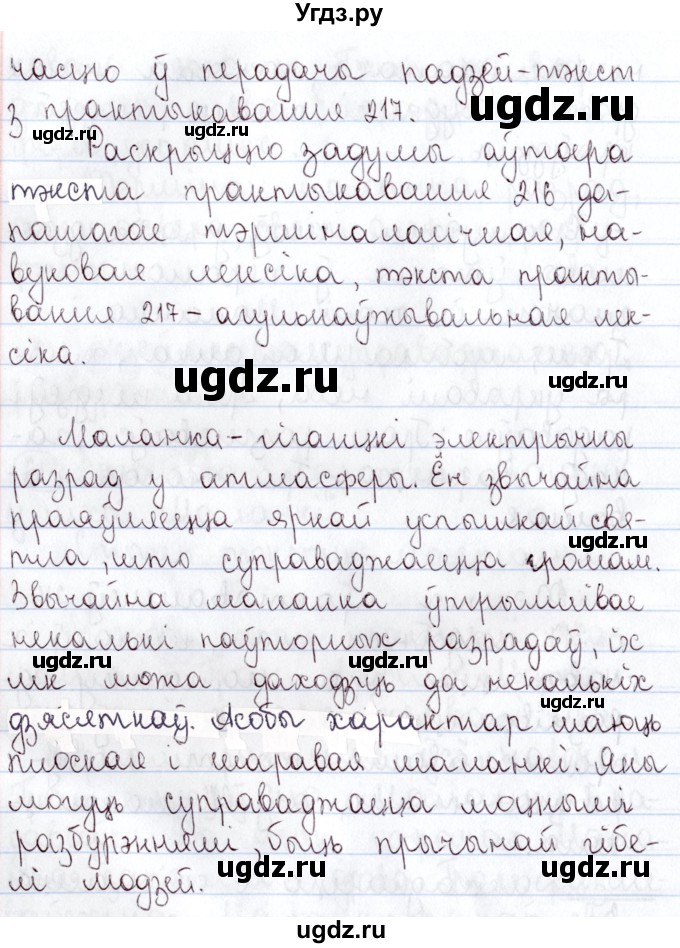 Угдз.ру
часцю ў перадачы падзей-тэкст
з практыкавання 217.
ugdz.ru
ugdz.ru
ugdz.ru
Раскрыццю задумы аўтара
тэкста практыкавання 216 да-
памагае тэрміналагічная, на-
вуковая лексіка, тэкста практы-
вання 217 – агульнаўжывальная лек-
сіка.
ugdz.ru
ugdz.ru
Маланка – гіганцкі электрычны
разрад у атмасферы. Ён звычайна
праяўляецца яркай успышкай свя-
тла, што суправаджаецца громам.
ugdz.ru
ugdz.ru
Звычайна маланка ўтрымлівае
некалькі паўторных разрадаў, іх
ugdz.ru
ugdz.ru
ugdz.ru
лік можа даходзіць да некалькіх
дзясяткаў. Асобы характар маюць
плоская і шаравая маланкі. Яны
могуць суправаджацца моцнымі
ugdz.ru
разбурэннямі, быць прычынай гібе-
лі людзей.
ugdz.ru
ugdz.ru
ugdz.ru
Угдз.ру